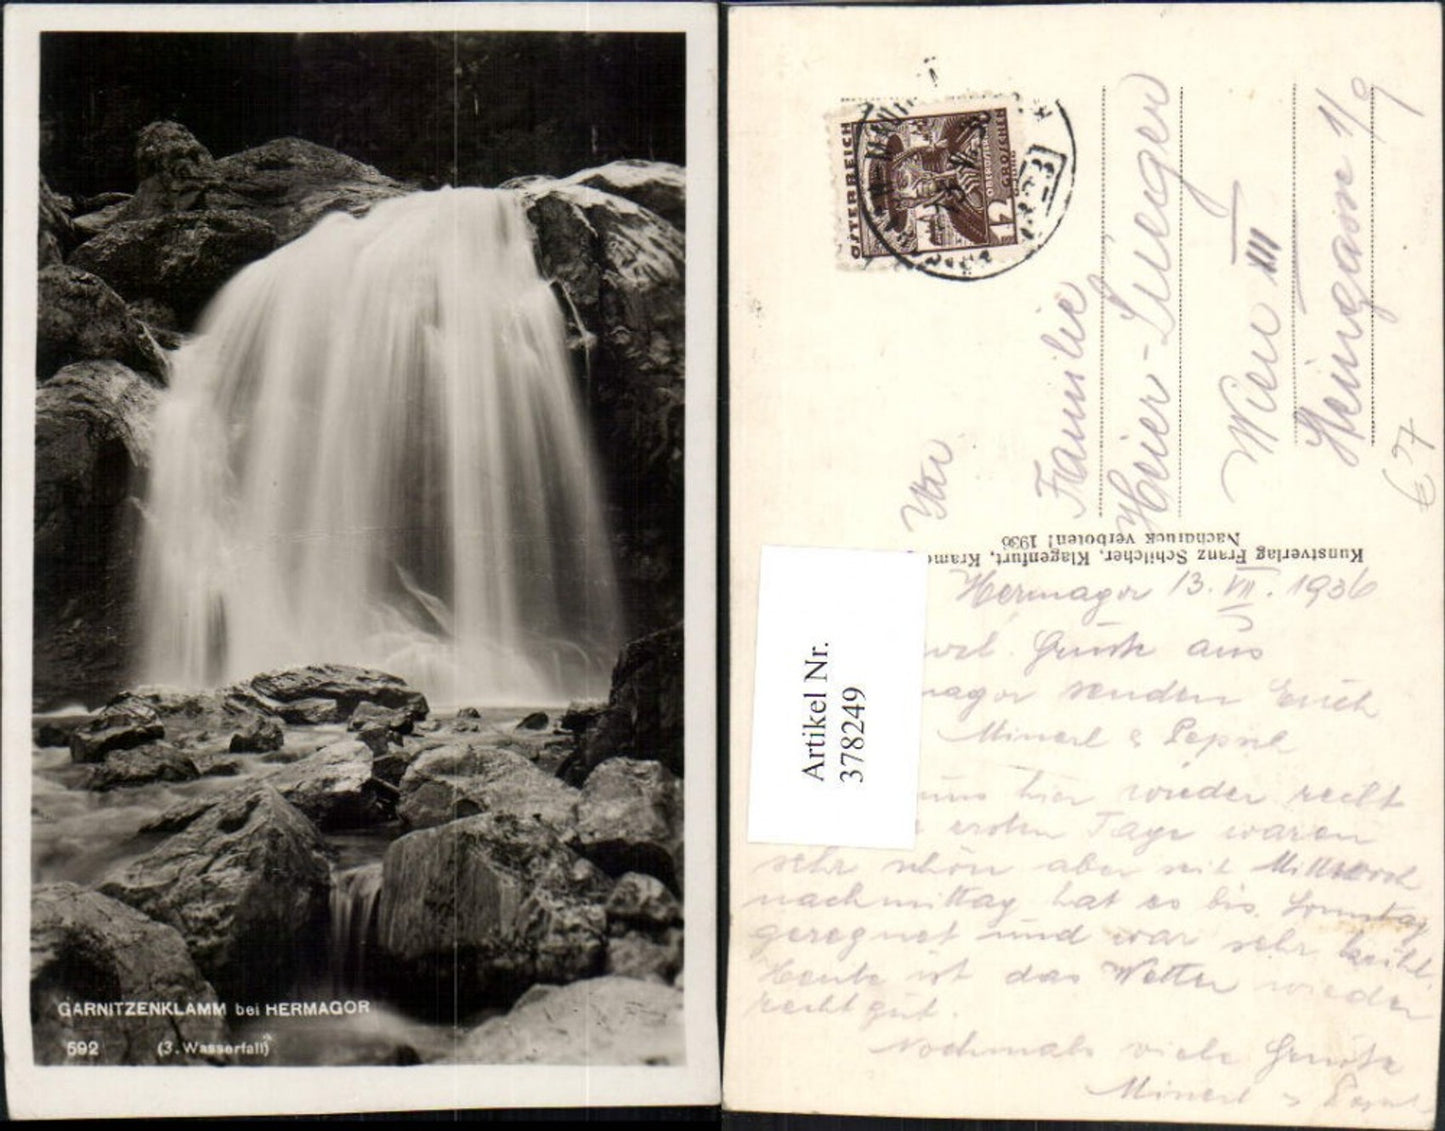 GARNITZENKLAMM bei HERMAGOR
592 (3. Wasserfall)
ÖSTERREICH
12 GROSCHEN
An
Familie
Wien XIII
1/9
€ 7
Kunstverlag Franz Schilcher, Klagenfurt,
Nachdruck verboten! 1936
Artikel Nr.
378249
Hermagor 13. VII. 1936
Grüße aus
senden Erich
Minerl &
uns hier wieder recht
ersten Tage waren
sehr schön aber seit Mittwoch
nachmittag hat es bis Sonntag
geregnet und war sehr
Heute ist das Wetter wieder
recht gut.
Nochmals viele Grüße
Minerl &